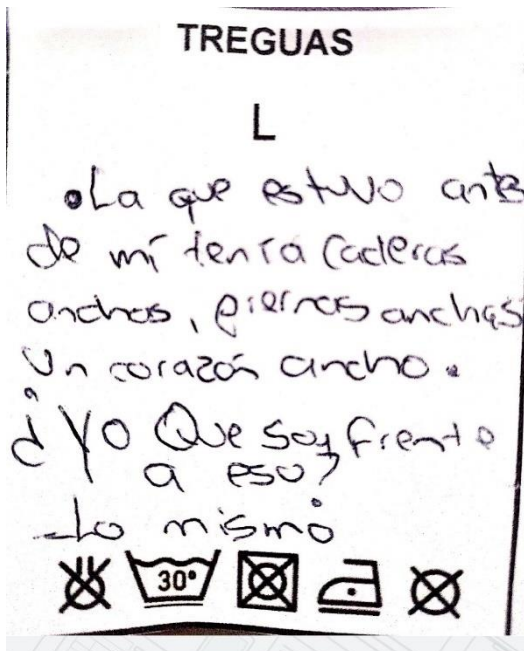 TREGUAS
L
•La que estuvo antes
de mí tenía Caderas
anchas, piernas anchas
Un corazón ancho.
¿YO Que soy frente
a eso?
-Lo mismo
30°